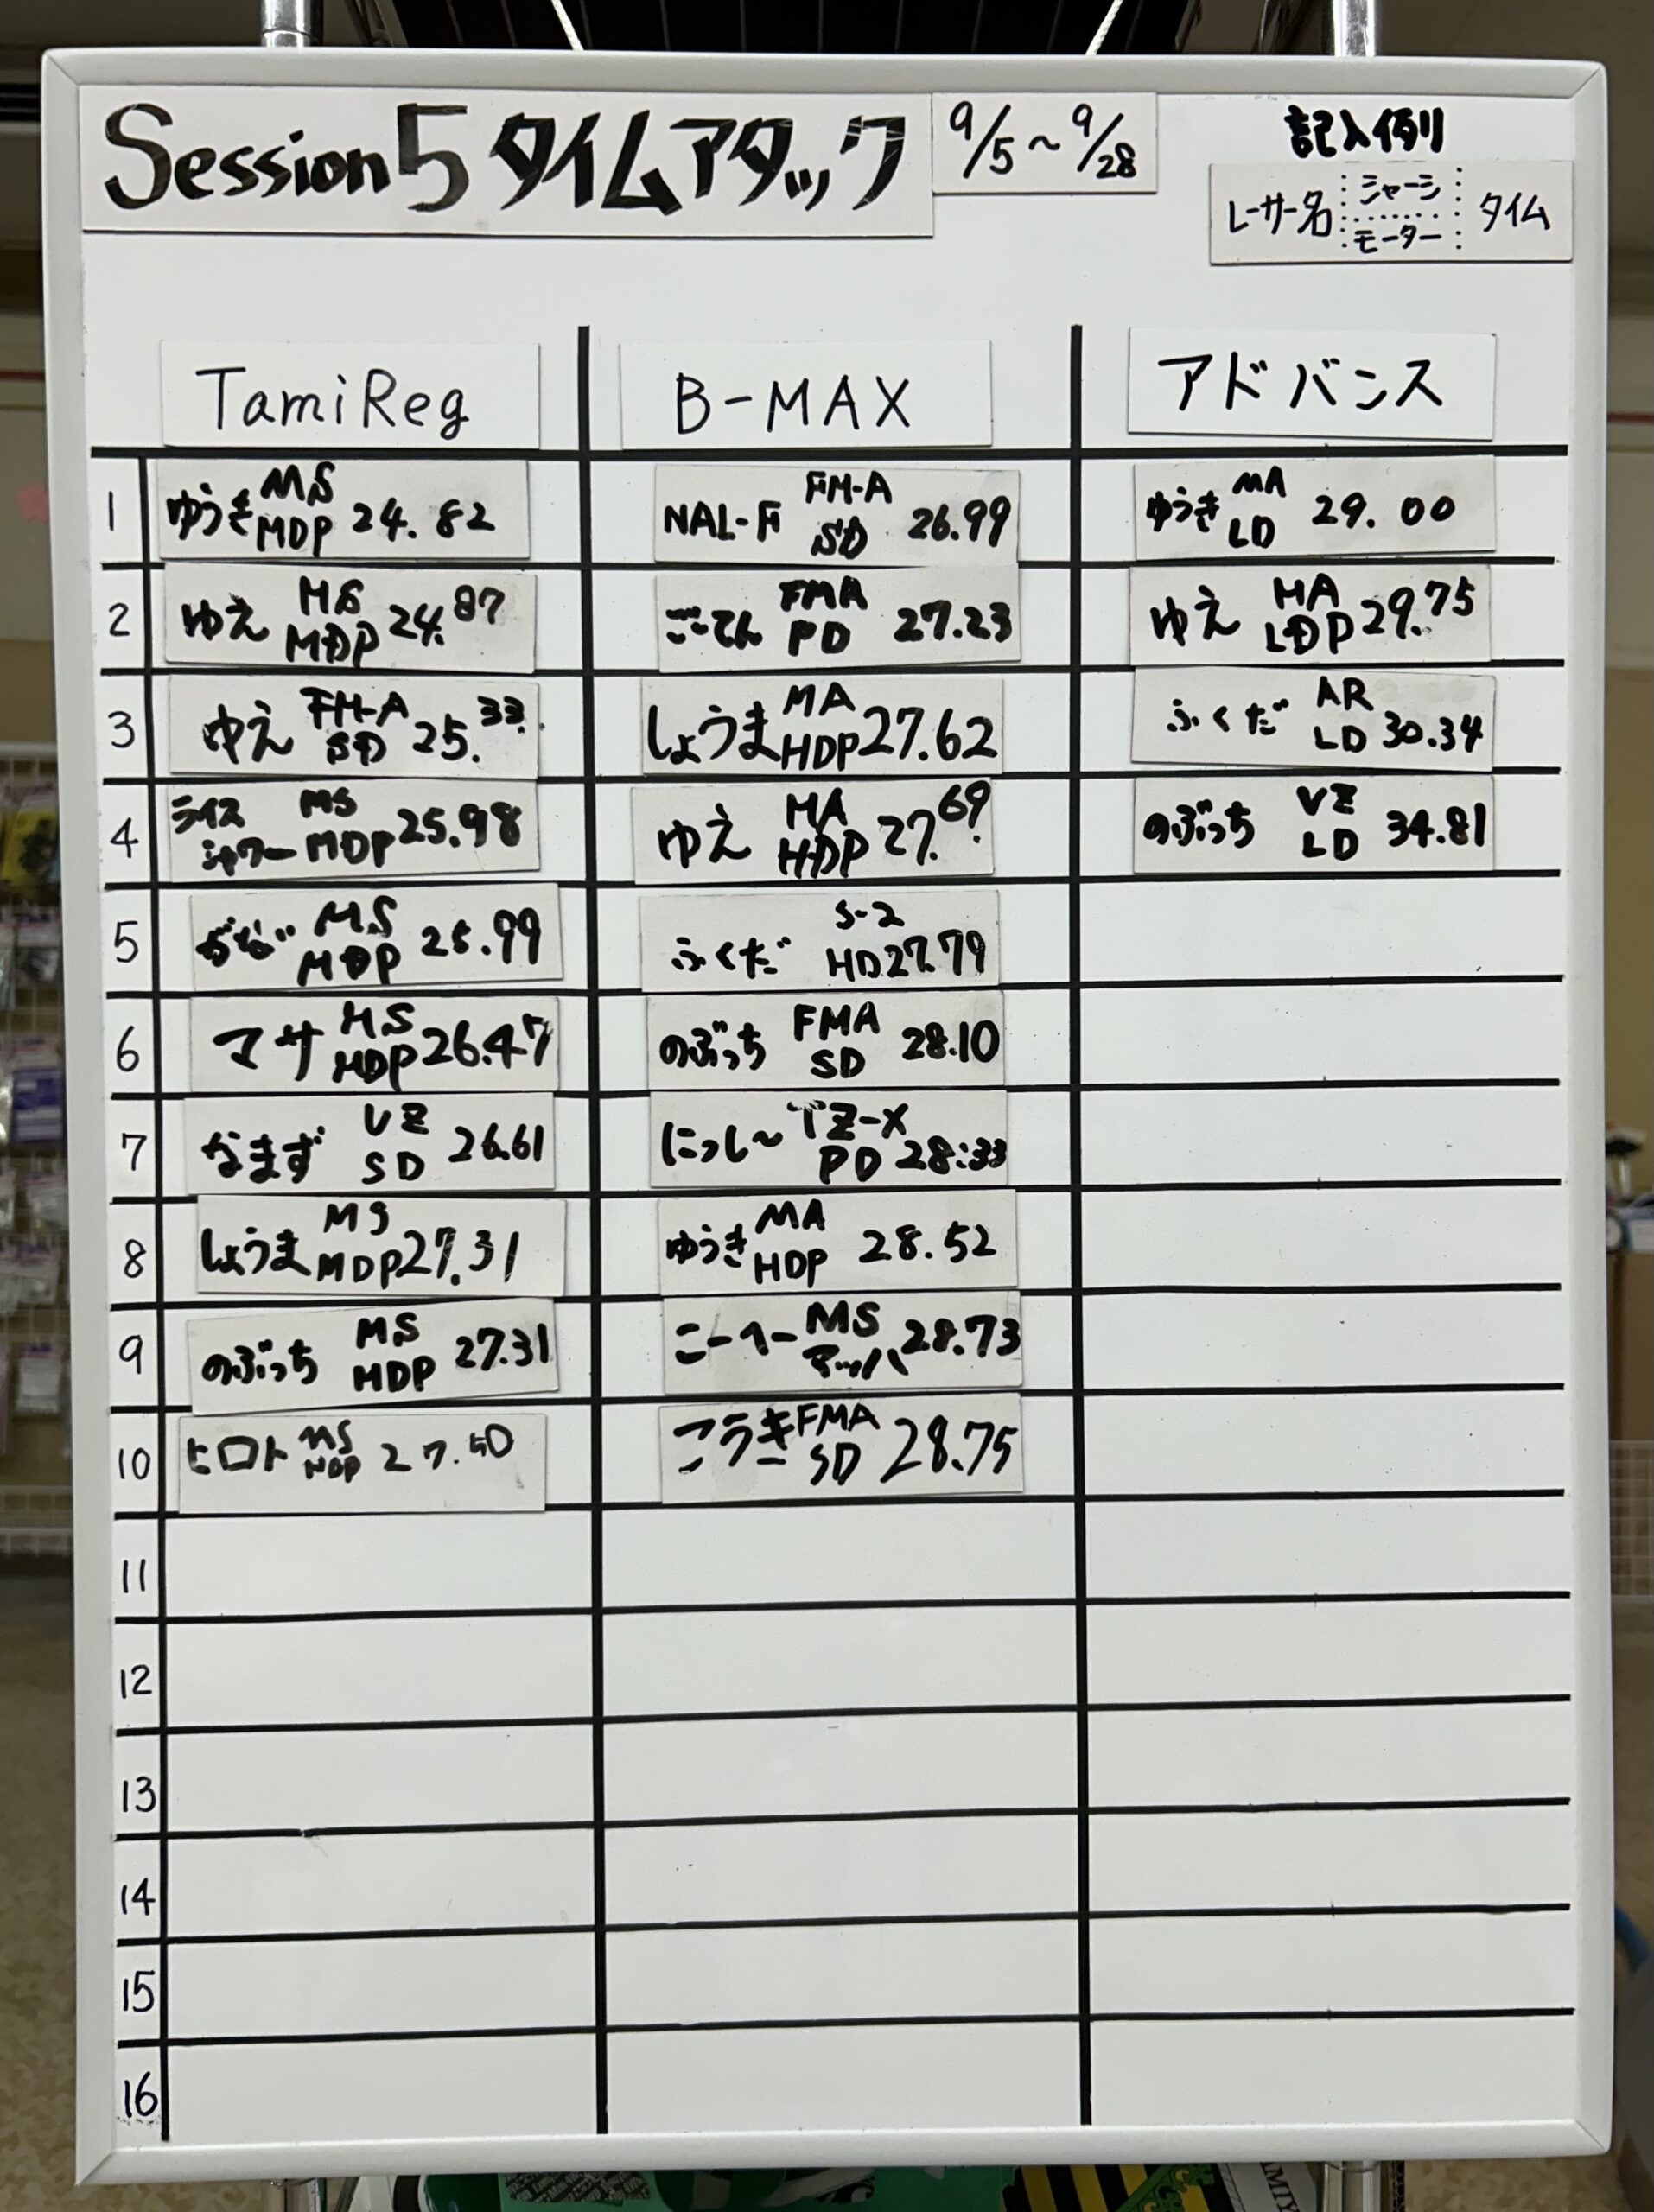 Session5 タイムアタック 9/5~9/28
記入例
レーサー名 シャーシ モーター タイム
TamiReg B-MAX アドバンス
1 ゆうき MS MDP 24.82 NAL-F FM-A SD 26.99 ゆうき MA LD 29.00
2 ゆえ MS MDP 24.87 ごてん FMA PD 27.23 ゆえ MA LDP 29.75
3 ゆえ FM-A SD 25.33 しょうま MA HDP 27.62 ふくだ AR LD 30.34
4 ライスシャワー MS MDP 25.98 ゆえ MA HDP 27.69 のぶっち VZ LD 34.81
5 MS MDP 25.99 ふくだ S-2 HD 27.79
6 マサ MS MDP 26.47 のぶっち FMA SD 28.10
7 なまず VZ SD 26.61 にっし~ TZ-X PD 28:33
8 しょうま MS MDP 27.31 ゆうき MA HDP 28.52
9 のぶっち MS MDP 27.31 こーへー MS マッハ 28.73
10 ヒロト MS MDP 27.50 こうき FMA SD 28.75
11
12
13
14
15
16